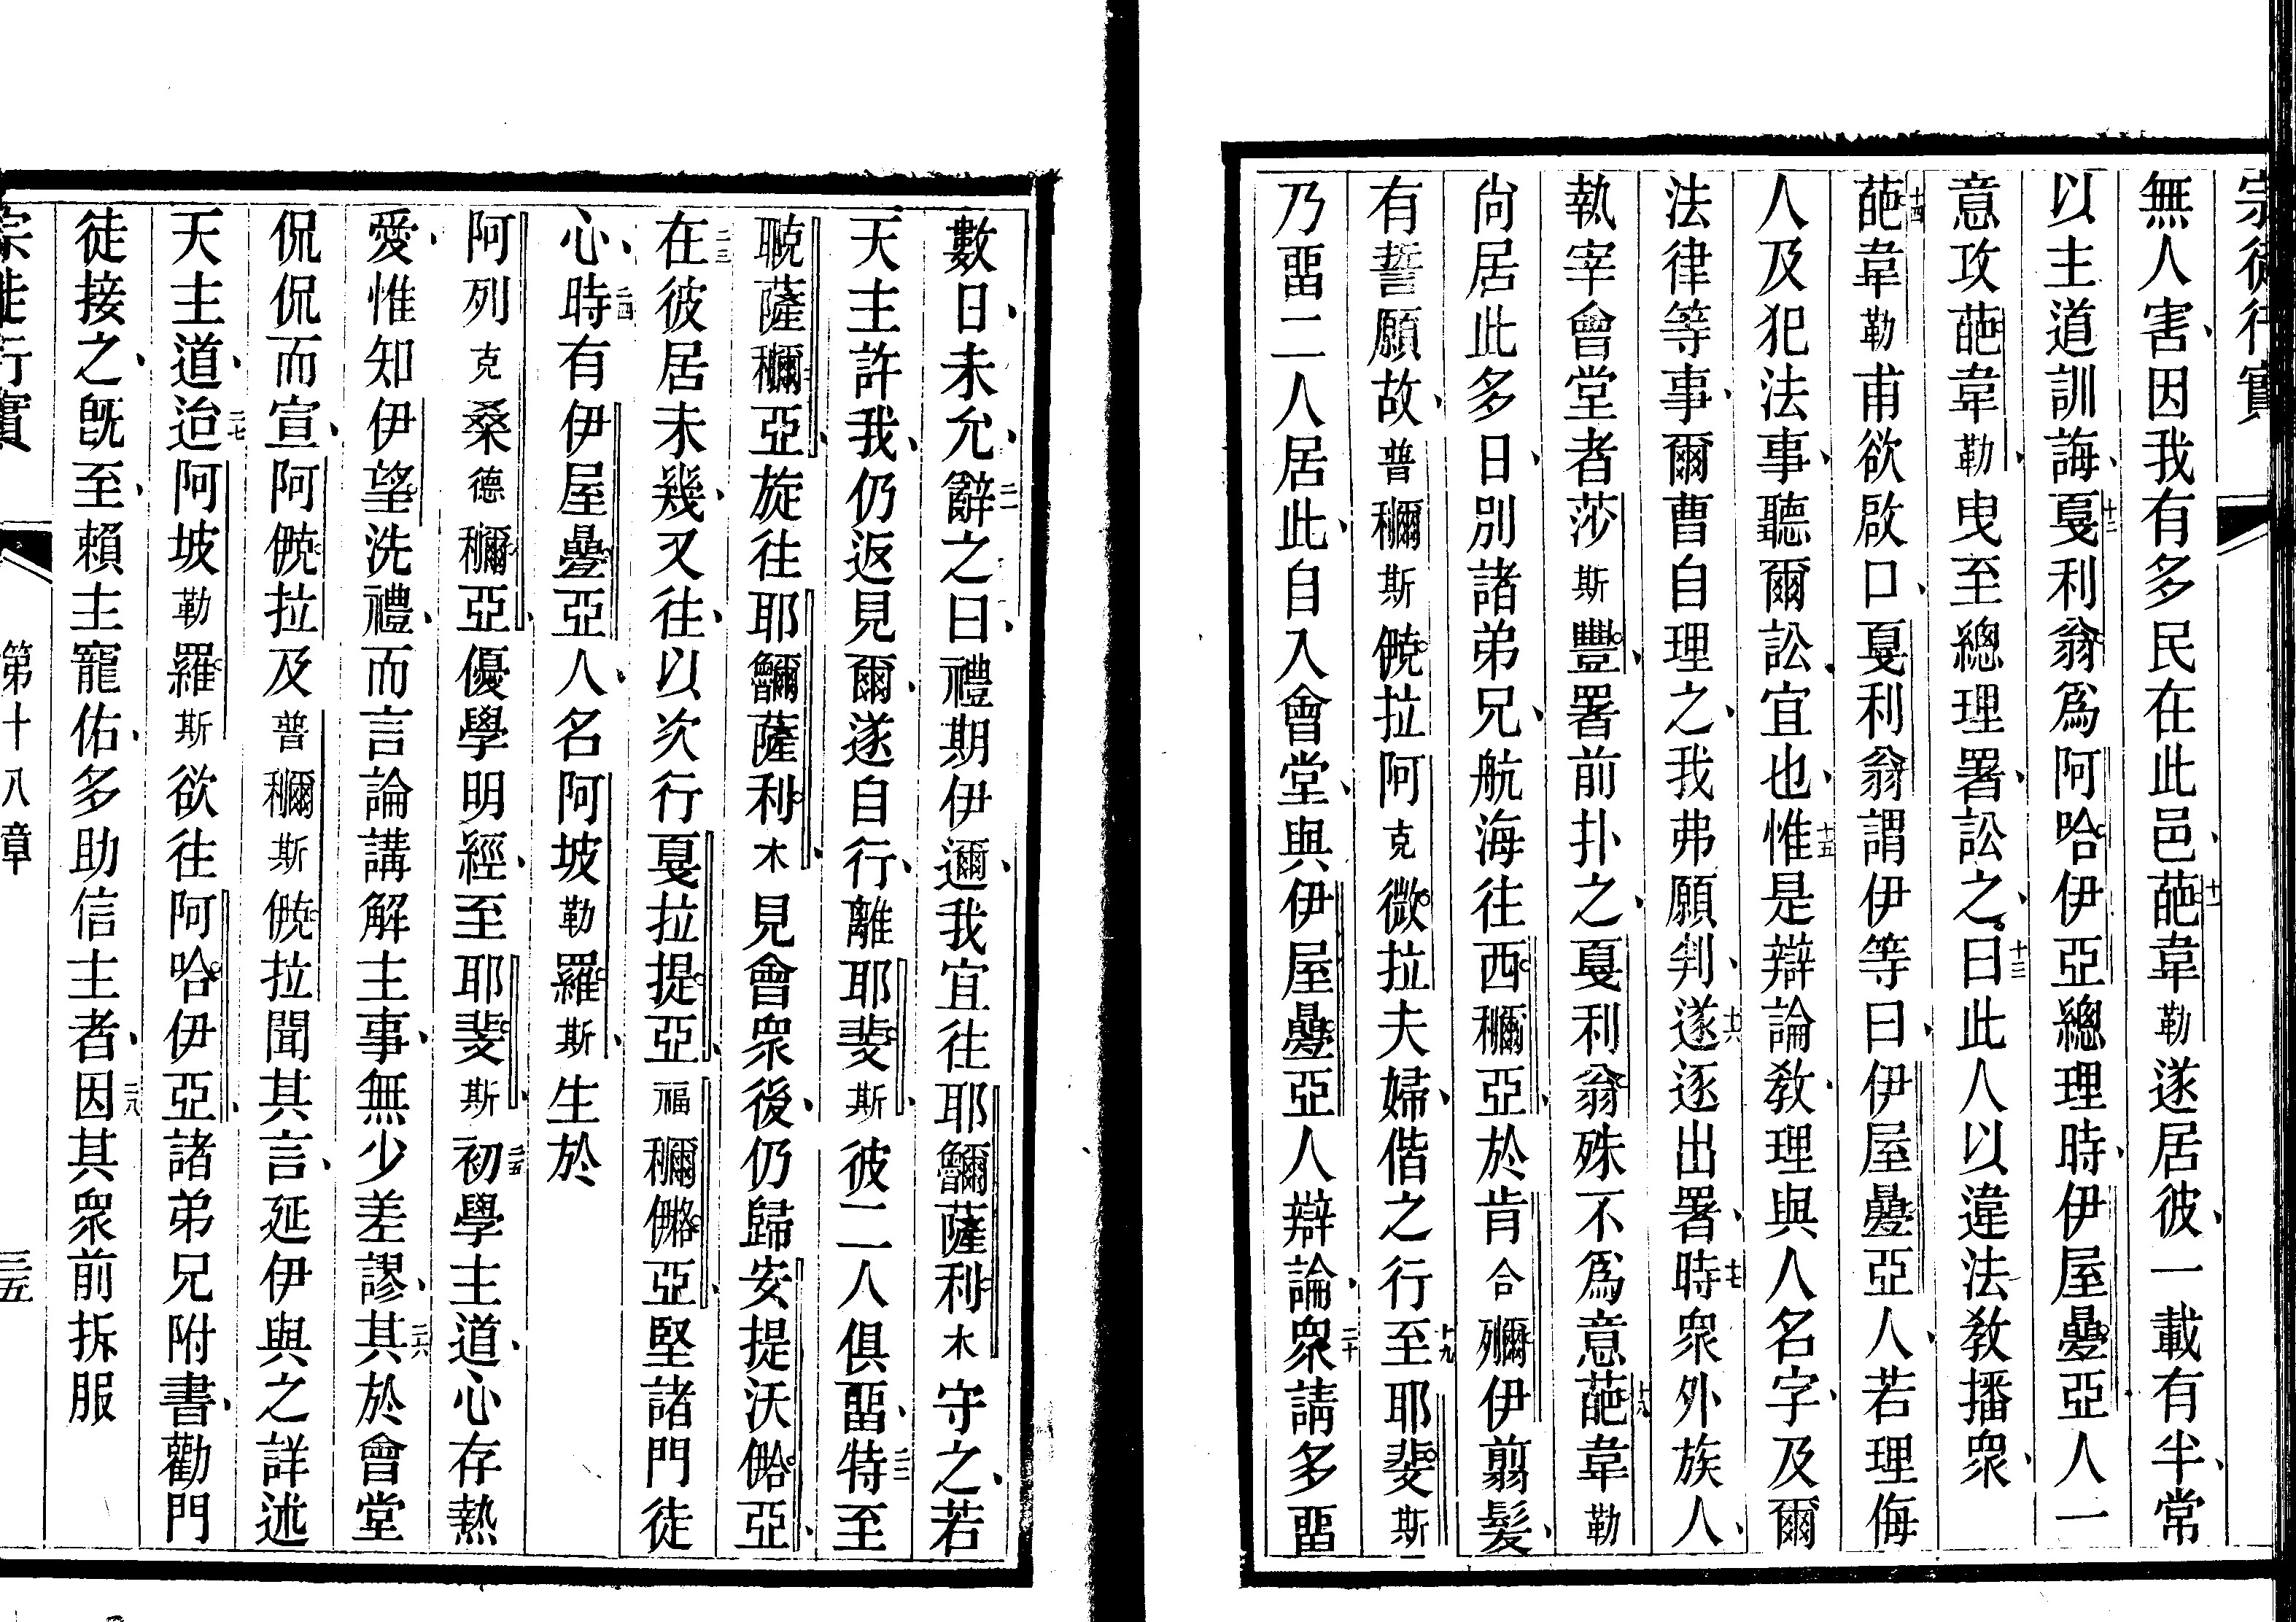 宗徒行實
無人害、因我有多民在此邑、十一葩韋勒遂居彼一載有半、常
以主道訓誨、十二戛利翁爲阿哈伊亞總理時、伊屋疉亞人一
意攻葩韋勒、曳至總理署、訟之、十三曰此人以違法教播衆、
十四葩韋勒甫欲啟口、戛利翁謂伊等曰、伊屋疉亞人、若理侮
人及犯法事、聽爾訟宜也、十五惟是辯論教理與人名字、及爾
法律等事、爾曹自理之、我弗願判、十六遂逐出署、十七時衆外族人、
執宰會堂者莎斯豐、署前扑之、戛利翁殊不爲意、十八葩韋勒
尙居此多日、別諸弟兄、航海往西穪亞、於肯合殢伊翦髮、
有誓願故、普穪斯伲拉阿克微拉夫婦、偕之行、十九至耶斐斯
乃畱二人居此、自入會堂、與伊屋疉亞人辯論、二十衆請多畱
數日、未允、二一辭之曰、禮期伊邇、我宜往耶嚕薩利木守之、若
天主許我、仍返見爾、遂自行、離耶斐斯、彼二人俱畱、二二特至
薩穪亞、旋往耶嚕薩利木、見會衆後、仍歸安提沃亞、
二三在彼居未幾、又往、以次行戛拉提亞、福穪亞、堅諸門徒
心、二四時有伊屋疉亞人、名阿坡勒羅斯、生於
阿列克桑德穪亞、優學明經、至耶斐斯、二五初學主道、心存熱
愛、惟知伊望洗禮、而言論講解主事、無少差謬、二六其於會堂
侃侃而宣、阿拉及普穪斯拉聞其言、延伊與之詳述
天主道、二七迨阿坡勒羅斯欲往阿哈伊亞、諸弟兄附書、勸門
徒接之、旣至、賴主寵佑、多助信主者、二八因其衆前拆服
宗徒行實
第十八章
三五